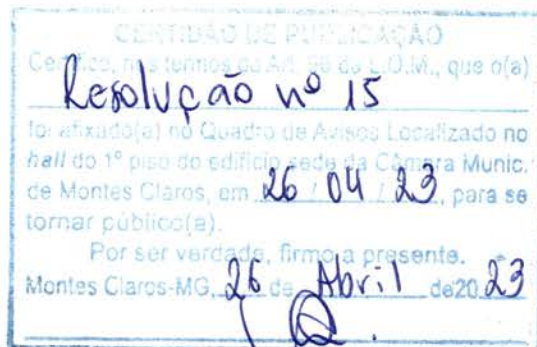 CERTIDÃO DE PUBLICAÇÃO
Certifico, nos termos do Art. 98 da L.O.M., que o(a)
Resolução nº 15
foi afixado(a) no Quadro de Avisos Localizado no
hall do 1º piso do edifício sede da Câmara Munic.
de Montes Claros, em 26 / 04 / 23, para se
tornar público(a).
Por ser verdade, firmo a presente.
Montes Claros-MG, 26 de Abril de20 23